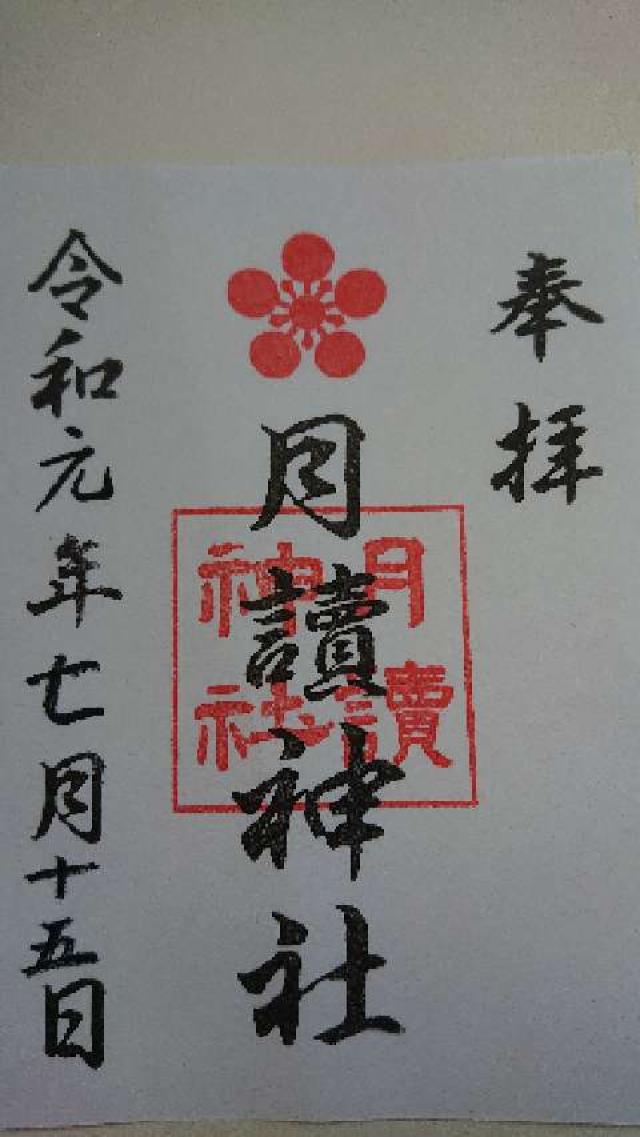 奉拝
月讀神社
月讀神社
令和元年七月十五日